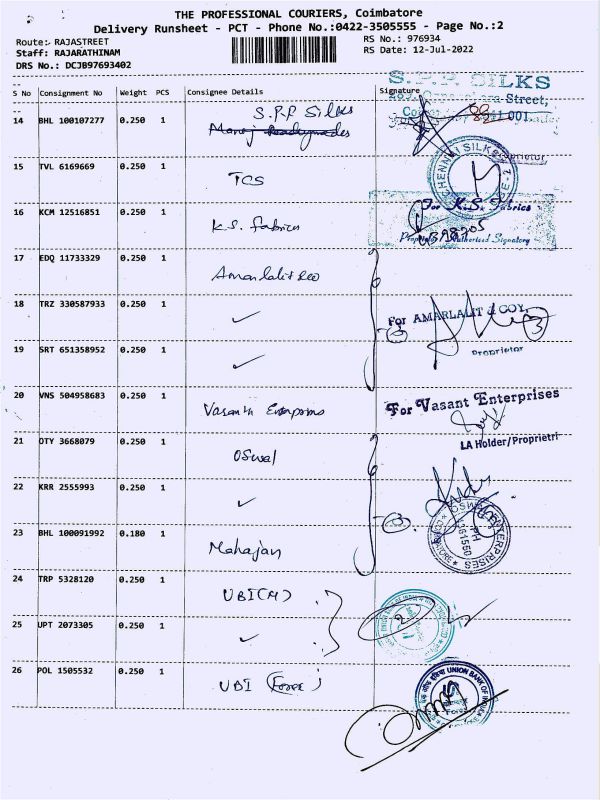 THE PROFESSIONAL COURIERS, Coimbatore
Delivery Runsheet - PCT - Phone No.:0422-3505555 - Page No.:2
Route: RAJASTREET
RS No.: 976934
Staff: RAJARATHINAM
RS Date: 12-Jul-2022
DRS No.: DCJB97693402
S No Consignment No Weight PCS Consignee Details Signature
S.P.P. SILKS
Street,
14 BHL 100107277 0.250 1 S.P.P Silks
001.
15 TVL 6169669 0.250 1 TCS
CHENNAI SILK
16 KCM 12516851 0.250 1 K.S. fabrics
For K.S. Fabrics
Authorised Signatory
17 EDQ 11733329 0.250 1 Amarlalit &co
18 TRZ 330587933 0.250 1 ✓
For AMARLALIT & COY.
3
19 SRT 651358952 0.250 1 ✓
Proprietor
20 VNS 504958683 0.250 1 Vasanth Enterprises
For Vasant Enterprises
21 OTY 3668079 0.250 1 Oswal
LA Holder/Proprietri
22 KRR 2555993 0.250 1 ✓
3
OSWAL ENTERPRISES
PH
23 BHL 100091992 0.180 1 Mahajan
24 TRP 5328120 0.250 1 UBI(M)
2
25 UPT 2073305 0.250 1 ✓
26 POL 1505532 0.250 1 UBI (Forex)
UNION BANK OF INDIA